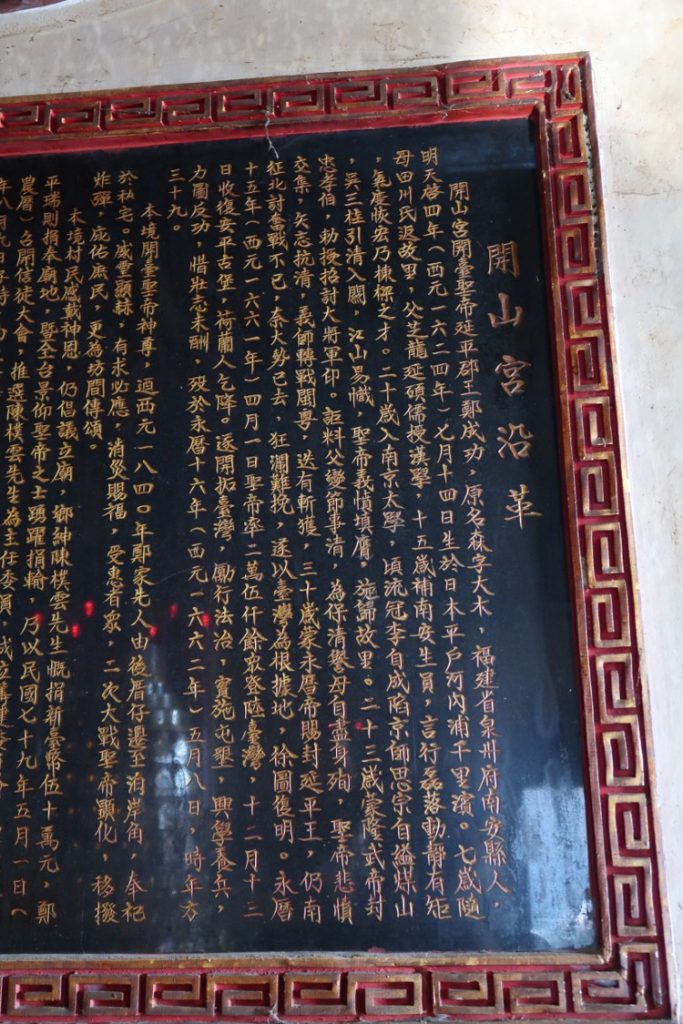 開山宮沿革
開山宮開臺聖帝延平郡王鄭成功，原名森字大木，福建省泉州府南安縣人，
明天啓四年（西元一六二四年）七月十四日生於日本平戶河內浦千里濱。七歲隨
母田川氏返故里，父芝龍延碩儒授漢學，十五歲補南安生員，言行磊落動靜有矩
，氣度恢宏乃棟樑之才。二十歲入南京太學，頃流冠李自成陷京師思宗自縊煤山
，吳三桂引清入關，江山易幟，聖帝義憤填膺。旋歸故里。二十三歲蒙隆武帝封
忠孝伯，勅授招討大將軍印。詎料父變節事清，為保清譽母自盡身殉，聖帝悲憤
交集，矢志抗清，義師轉戰閩粵，迭有斬獲，三十歲蒙永曆帝賜封延平王，仍南
征北討奮戰不已，奈大勢已去，狂瀾難挽，遂以臺灣為根據地，徐圖復明。永曆
十五年（西元一六六一年）四月一日聖帝率二萬伍仟餘眾登陸臺灣，十二月十三
日收復安平古堡，荷蘭人乞降。遂開拓臺灣，勵行法治，實施屯墾，興學養兵，
力圖反功，惜壯志未酬，歿於永曆十六年（西元一六六二年）五月八日，時年方
三十九。
本境開臺聖帝神尊，迺西元一八四〇年鄭家先人由後厝仔遷至泊岸角，奉祀
於私宅。威靈顯赫，有求必應，消災賜福，受惠者眾，二次大戰聖帝顯化，移撥
炸彈，庇佑庶民，更為坊間傳頌。
本境村民感載神恩，仍倡議立廟，鄉紳陳樸雲先生慨捐新臺幣伍十萬元，鄭
平瑞則捐奉廟地，暨全台景仰聖帝之士踴躍捐輸，乃以民國七十九年五月一日（
農曆）召開信徒大會，推選陳樸雲先生為主任委員，成立籌建委